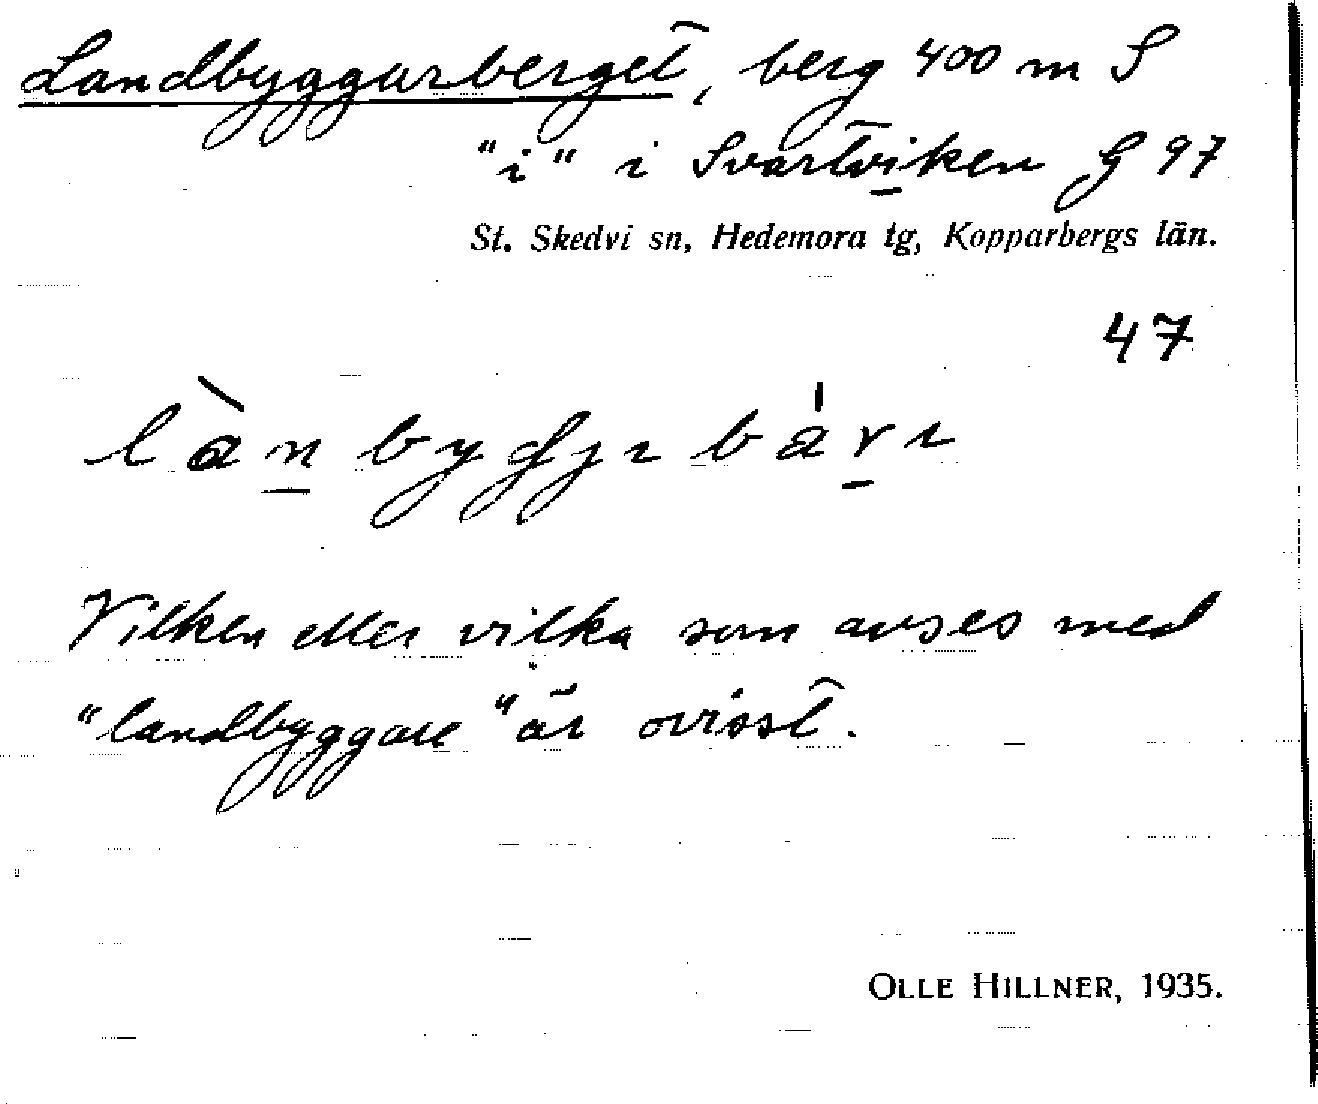 Landbyggarberget, berg 400 m S
"i" i Svartviken G 97
St. Skedvi sn, Hedemora tg, Kopparbergs län.
47
Vilken eller vilka som avses med
"landbyggare" är ovisst.
OLLE HILLNER, 1935.